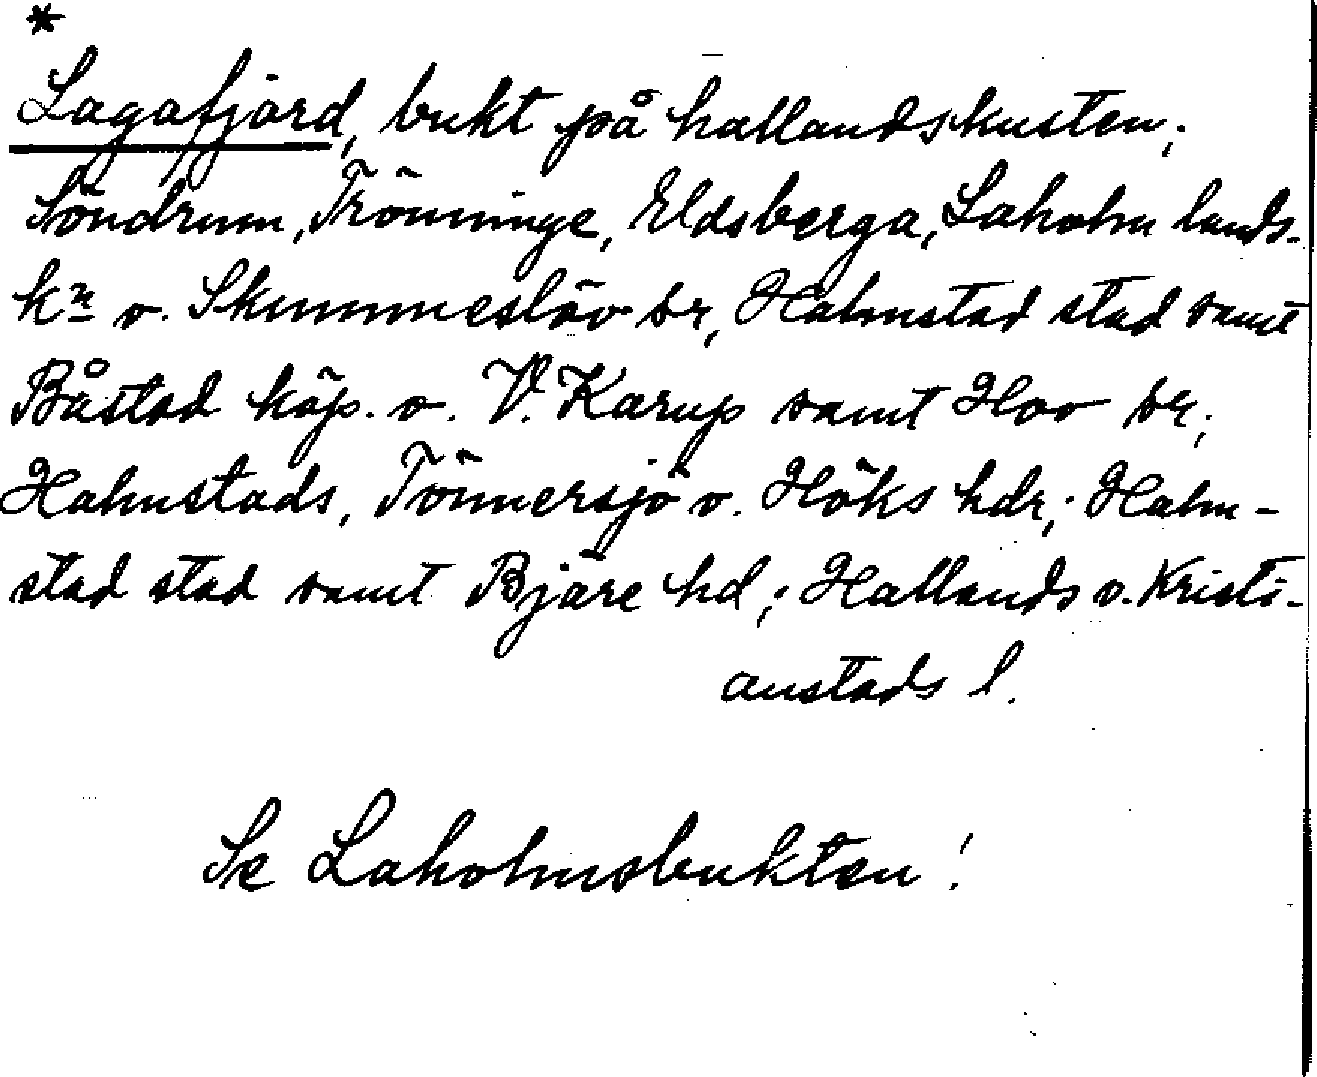 *
Lagafjärd, bukt på hallandskusten;
Söndrum, Trönninge, Eldsberga, Laholm lands-
kn o. Skummeslöv sr, Halmstad stad samt
Båstad köp. o. V. Karup samt Hov sr;
Halmstads, Tönnersjö o. Höks hdr; Halm-
stad stad samt Bjäre hd; Hallands o. Kristi-
anstads l.
Se Laholmsbukten!